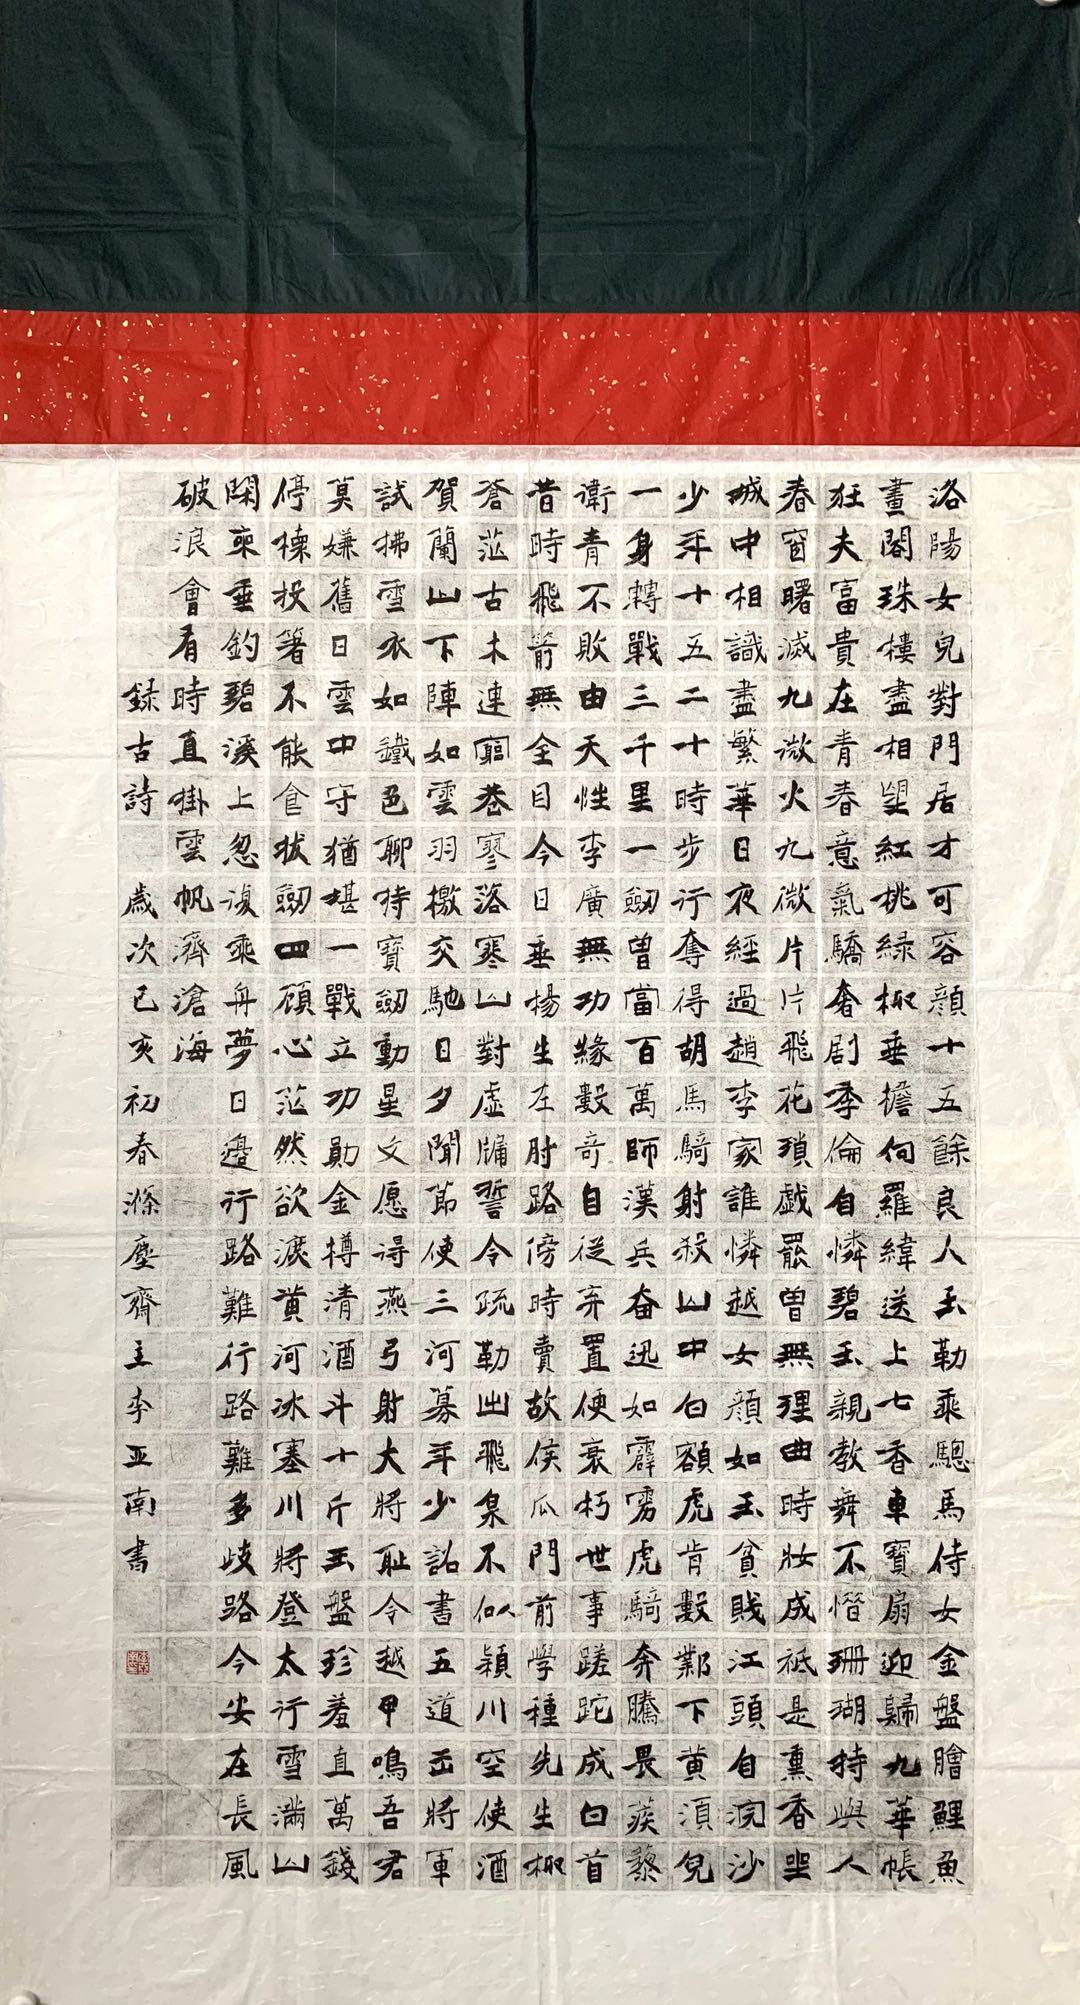 洛陽女兒對門居才可容顏十五餘良人玉勒乘驄馬侍女金盤膾鯉魚
畫閣珠樓盡相望紅桃綠柳垂檐向羅緯送上七香車寶扇迎歸九華帳
狂夫富貴在青春意氣驕奢劇季倫自憐碧玉親教舞不惜珊瑚持與人
春窗曙滅九微火九微片片飛花瑣戲罷曾無理曲時妝成祇是熏香坐
城中相識盡繁華日夜經過趙李家誰憐越女顏如玉貧賤江頭自浣沙
少年十五二十時步行奪得胡馬騎射殺山中白額虎肯數鄴下黃須兒
一身轉戰三千里一劍曾當百萬師漢兵奋迅如霹雳虎騎奔騰畏蒺藜
衛青不敗由天性李廣無功緣數奇自從弃置便衰朽世事蹉跎成白首
昔時飛箭無全目今日垂楊生左肘路傍時賣故侯瓜門前學種先生柳
蒼茫古木連窮巷寥落寒山對虛牖誓令疏勒出飛泉不似潁川空使酒
賀蘭山下陣如雲羽檄交馳日夕聞節使三河募年少詔書五道出將軍
試拂雪衣如鐵色聊持寶劍動星文愿得燕弓射大將恥令越甲鳴吾君
莫嫌舊日雲中守猶堪一戰立功勛金樽清酒斗十斤玉盤珍羞直萬錢
停投箸不能食拔劍四顧心茫然欲渡黃河冰塞川將登太行雪滿山
閑來垂釣碧溪上忽復乘舟夢日邊行路難行路難多歧路今安在長風
破浪會有時直掛雲帆濟滄海
録古詩 歲次己亥初春滌塵齋主李亚南書